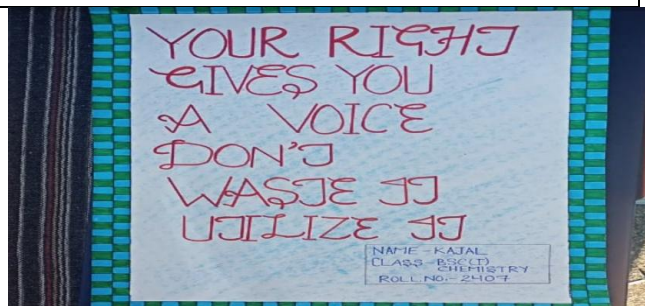 YOUR RIGHT
GIVES YOU
A VOICE
DON'T
WASTE IT
UTILIZE IT
NAME - KAJAL
CLASS - BSC(I)
CHEMISTRY
ROLL NO. - 2407